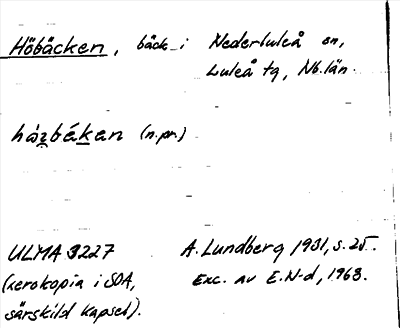 Höbäcken, bäck i Nederluleå sn,
Luleå tg, Nb. län.
(n.pr.)
ULMA 3227 A. Lundberg 1931, s. 25.
(xerokopia i SOA, Exc. av E.N-d, 1963.
särskild kapsel).